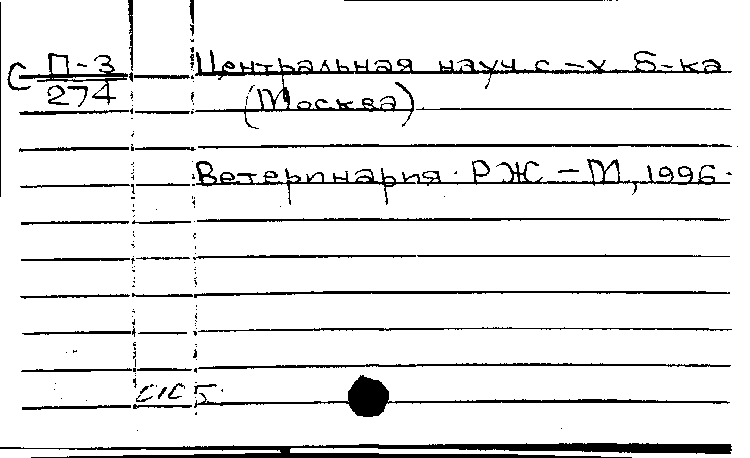 С П-3 Центральная науч с-х б-ка
274 (Москва)
Ветеринария. РЖ – М, 1996.